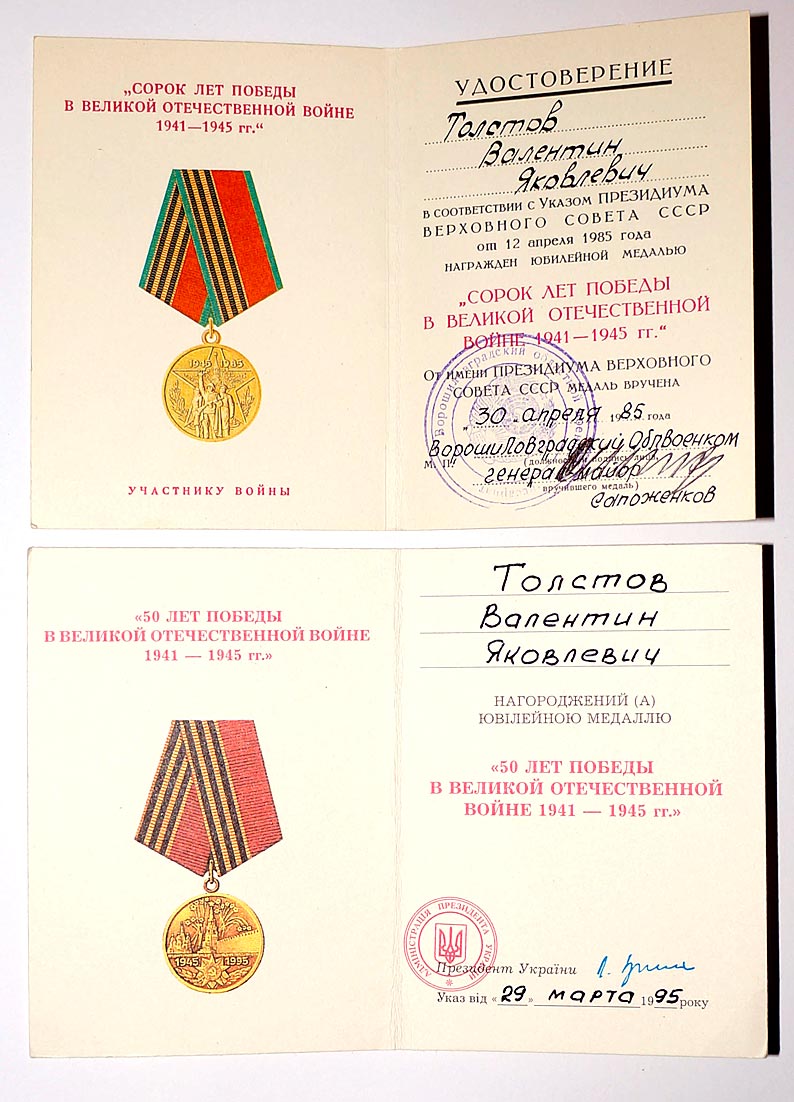 „СОРОК ЛЕТ ПОБЕДЫ
В ВЕЛИКОЙ ОТЕЧЕСТВЕННОЙ ВОЙНЕ
1941—1945 гг.“
1945 1985
УЧАСТНИКУ ВОЙНЫ
УДОСТОВЕРЕНИЕ
Толстов
Валентин
Яковлевич
В СООТВЕТСТВИИ С УКАЗОМ ПРЕЗИДИУМА
ВЕРХОВНОГО СОВЕТА СССР
от 12 апреля 1985 года
НАГРАЖДЕН ЮБИЛЕЙНОЙ МЕДАЛЬЮ
„СОРОК ЛЕТ ПОБЕДЫ
В ВЕЛИКОЙ ОТЕЧЕСТВЕННОЙ
ВОЙНЕ 1941—1945 гг.“
ОТ ИМЕНИ ПРЕЗИДИУМА ВЕРХОВНОГО
СОВЕТА СССР МЕДАЛЬ ВРУЧЕНА
„30„ апреля 1985 года
Ворошиловградский Облвоенком
М. П. (должность и подпись лица,
генерал-майор
вручившего медаль)
Сапоженков
Ворошиловградский областной
«50 ЛЕТ ПОБЕДЫ
В ВЕЛИКОЙ ОТЕЧЕСТВЕННОЙ ВОЙНЕ
1941 — 1945 гг.»
1945 1995
Толстов
Валентин
Яковлевич
НАГОРОДЖЕНИЙ (А)
ЮВІЛЕЙНОЮ МЕДАЛЛЮ
«50 ЛЕТ ПОБЕДЫ
В ВЕЛИКОЙ ОТЕЧЕСТВЕННОЙ
ВОЙНЕ 1941 — 1945 гг.»
АДМІНІСТРАЦІЯ ПРЕЗИДЕНТА УКРАЇНИ
Президент України
Указ від «29» марта 1995 року